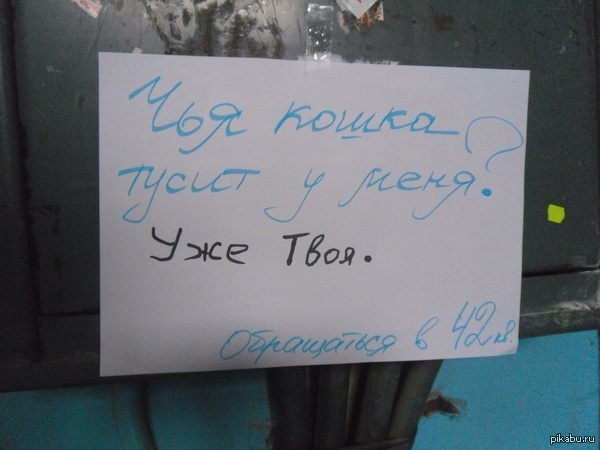 Чья кошка
тусит у меня?
Уже Твоя.
Обращаться в 42 кв.
pikabu.ru